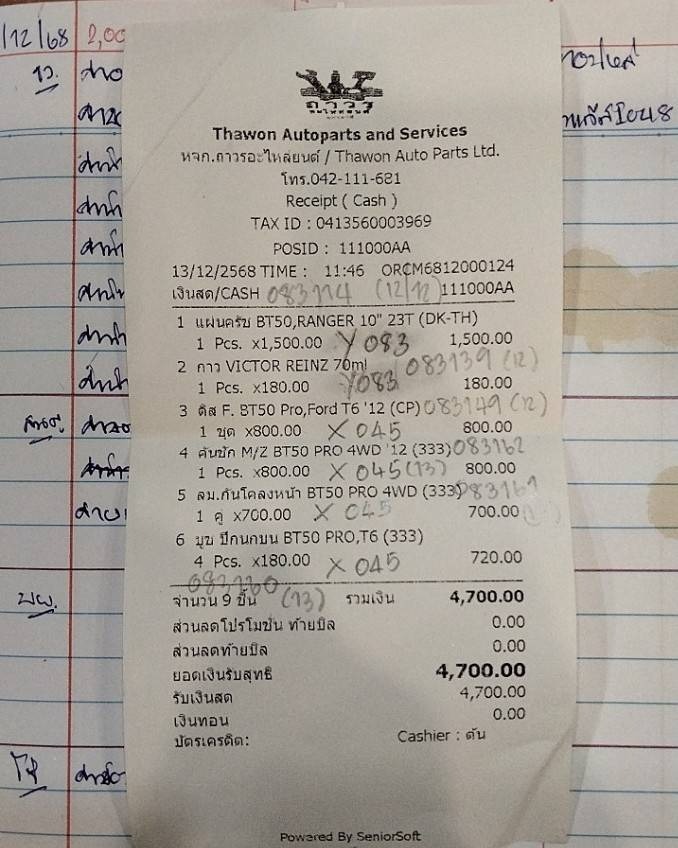 /12/68 2,00
ถาวร
Thawon Autoparts and Services
หจก.ถาวรอะไหล่ยนต์ / Thawon Auto Parts Ltd.
โทร.042-111-681
Receipt ( Cash )
TAX ID : 0413560003969
POSID : 111000AA
13/12/2568 TIME : 11:46 ORCM6812000124
เงินสด/CASH 083114 (12/12) 111000AA
1 แผ่นครัช BT50,RANGER 10" 23T (DK-TH)
1 Pcs. x1,500.00 Y 083 1,500.00
2 กาว VICTOR REINZ 70ml 083139 (12)
1 Pcs. x180.00 Y083 180.00
3 ดิส F. BT50 Pro,Ford T6 '12 (CP) 083149 (12)
1 ชุด x800.00 X 045 800.00
4 คันชัก M/Z BT50 PRO 4WD '12 (333) 083162
1 Pcs. x800.00 X 045 (13) 800.00
5 ลม.กันโคลงหน้า BT50 PRO 4WD (333) 083161
1 คู่ x700.00 X 045 700.00
6 บูช ปีกนกบน BT50 PRO,T6 (333)
4 Pcs. x180.00 X 045 720.00
083160
จำนวน 9 ชิ้น (13) รวมเงิน 4,700.00
ส่วนลดโปรโมชั่น ท้ายบิล 0.00
ส่วนลดท้ายบิล 0.00
ยอดเงินรับสุทธิ 4,700.00
รับเงินสด 4,700.00
เงินทอน 0.00
บัตรเครดิต: Cashier : ตัน
Powered By SeniorSoft